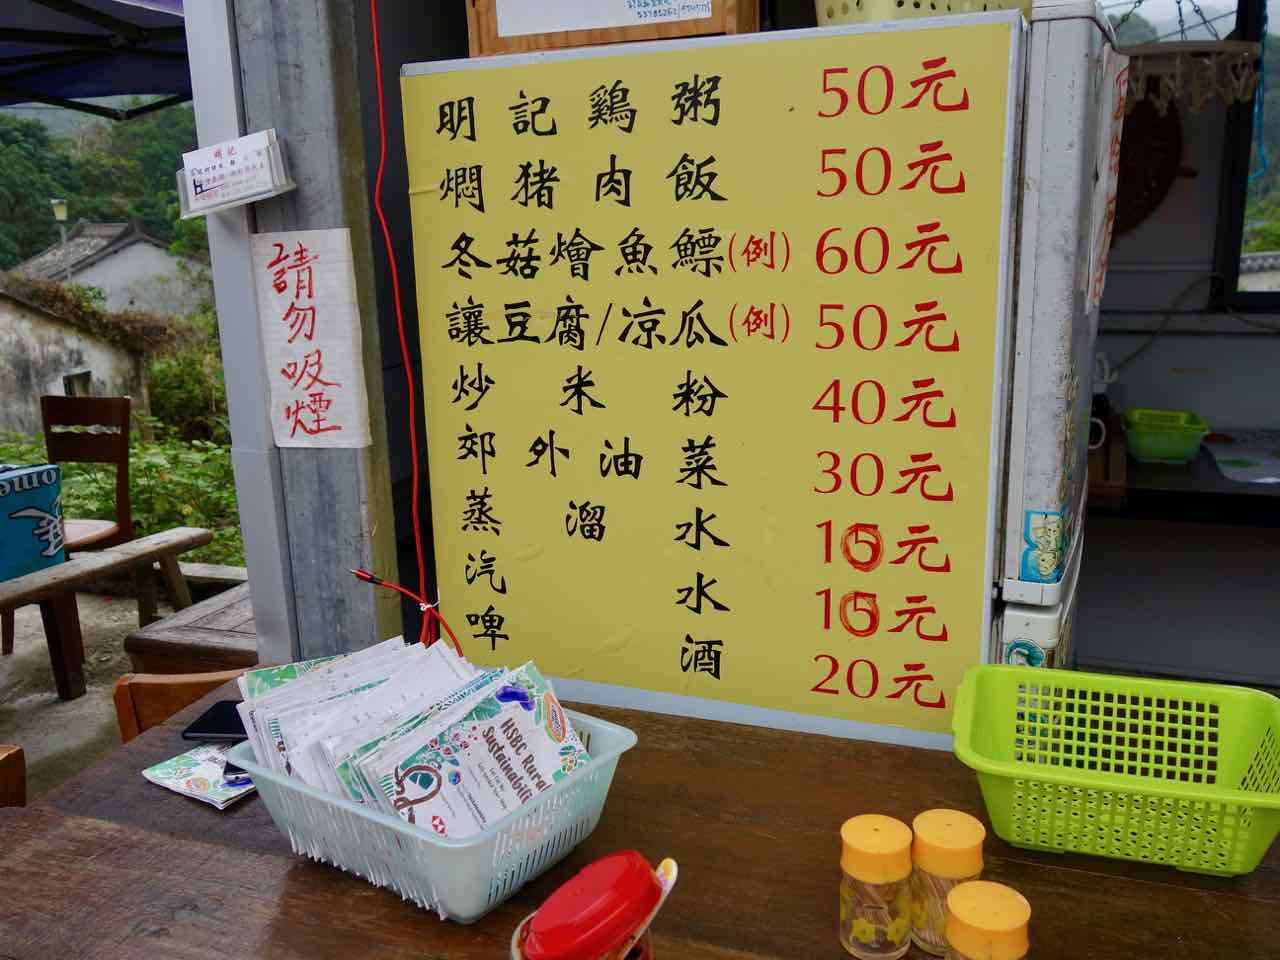 明記鷄粥 50元
燜猪肉飯 50元
冬菇燴魚鰾(例) 60元
讓豆腐/凉瓜(例) 50元
炒米粉 40元
郊外油菜 30元
蒸溜水 15元
汽水 15元
啤酒 20元
請勿吸煙
明記
HSBC Rural
Sustainabili